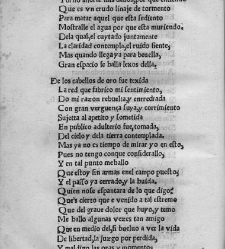 Que es vn crudo linaje de tormento
Para matar aquel que esta sediento
Mostralle el agua por que esta muriendo.
Dela qual el cuytado juntamente
La claridad contempla, el ruido siente,
Mas quando llega ya para bevella,
Gran espacio se halla lexos della.
De los cabellos de oro fue texida
La red que fabrico mi sentimiento,
Do mi razon rebuelta y enredada
Con gran verguença suya, y corrimiento
Sujeta al apetito y sometida
En publico adulterio fue tomada,
Del cielo y dela tierra contemplada.
Mas ya no es tiempo de mirar yo en esto,
Pues no tengo conque considerallo,
Y en tal punto me hallo
Que estoy sin armas en el campo puesto,
Y el passo ya cerrado, y la huida.
Quien no se espantara de lo que digo?
Que es cierto que e venido a tal estremo
Que del graue dolor que huyo, y temo
Me hallo algunas vezes tan amigo
Que en medio del, si buelvo a ver la vida
De libertad, la juzgo por perdida,